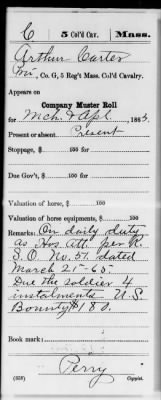 C 5 Col'd Cav. Mass.
Arthur Carter
Pvt., Co. G, 5 Reg't Mass. Col'd Cavalry.
Appears on
Company Muster Roll
for Mch & Apl, 1865.
Present or absent Present
Stoppage, $ 100 for
Due Gov't, $ 100 for
Valuation of horse, $ 100
Valuation of horse equipments, $ 100
Remarks: On daily duty
as Hos. Att. per R.
S.O. No. 51. dated
March 25-65.
Due the soldier 4
instalments U.S.
Bounty $180.
Book mark:
Perry
(858) Copyist.